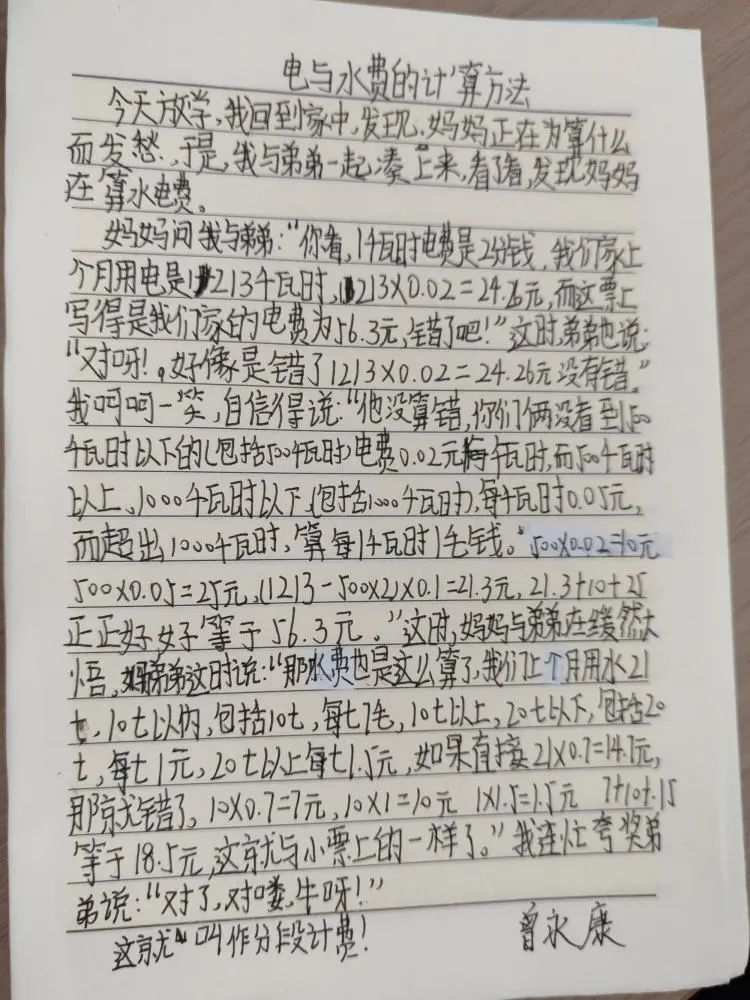 电与水费的计算方法
今天放学，我回到家中，发现，妈妈正在为算什么
而发愁，于是，我与弟弟一起凑上来，看了看，发现妈妈
在算水电费。
妈妈问我与弟弟：“你看，1千瓦时电费是2分钱，我们家上
个月用电是1213千瓦时，1213×0.02=24.26元，而这票上
写得是我们家的电费为56.3元，错了吧！”这时，弟弟也说：
“对呀！。好像是错了1213×0.02=24.26元没有错。”
我呵呵一笑，自信得说：“他没算错，你们俩没看到500
千瓦时以下的（包括500千瓦时）电费0.02元每千瓦时，而500千瓦时
以上、1000千瓦时以下（包括1000千瓦时），每千瓦时0.05元，
而超出1000千瓦时，算每1千瓦时1毛钱。“500×0.02=10元
500×0.05=25元，(1213-500×2)×0.1=21.3元，21.3+10+25
正正好好等于56.3元。”这时，妈妈与弟弟在缓然大
悟，弟弟这时说：“那水费也是这么算了，我们上个月用水21
t，10t以内，包括10t，每t7毛，10t以上，20t以下，包括20
t，每t1元，20t以上每t1.5元，如果直接21×0.7=14.7元，
那就错了，10×0.7=7元，10×1=10元 1×1.5=1.5元 7+10+1.5
等于18.5元，这就与小票上的一样了。”我连忙夸奖弟
弟说：“对了，对喽，牛呀！”
这就叫作分段计费！ 曾永康